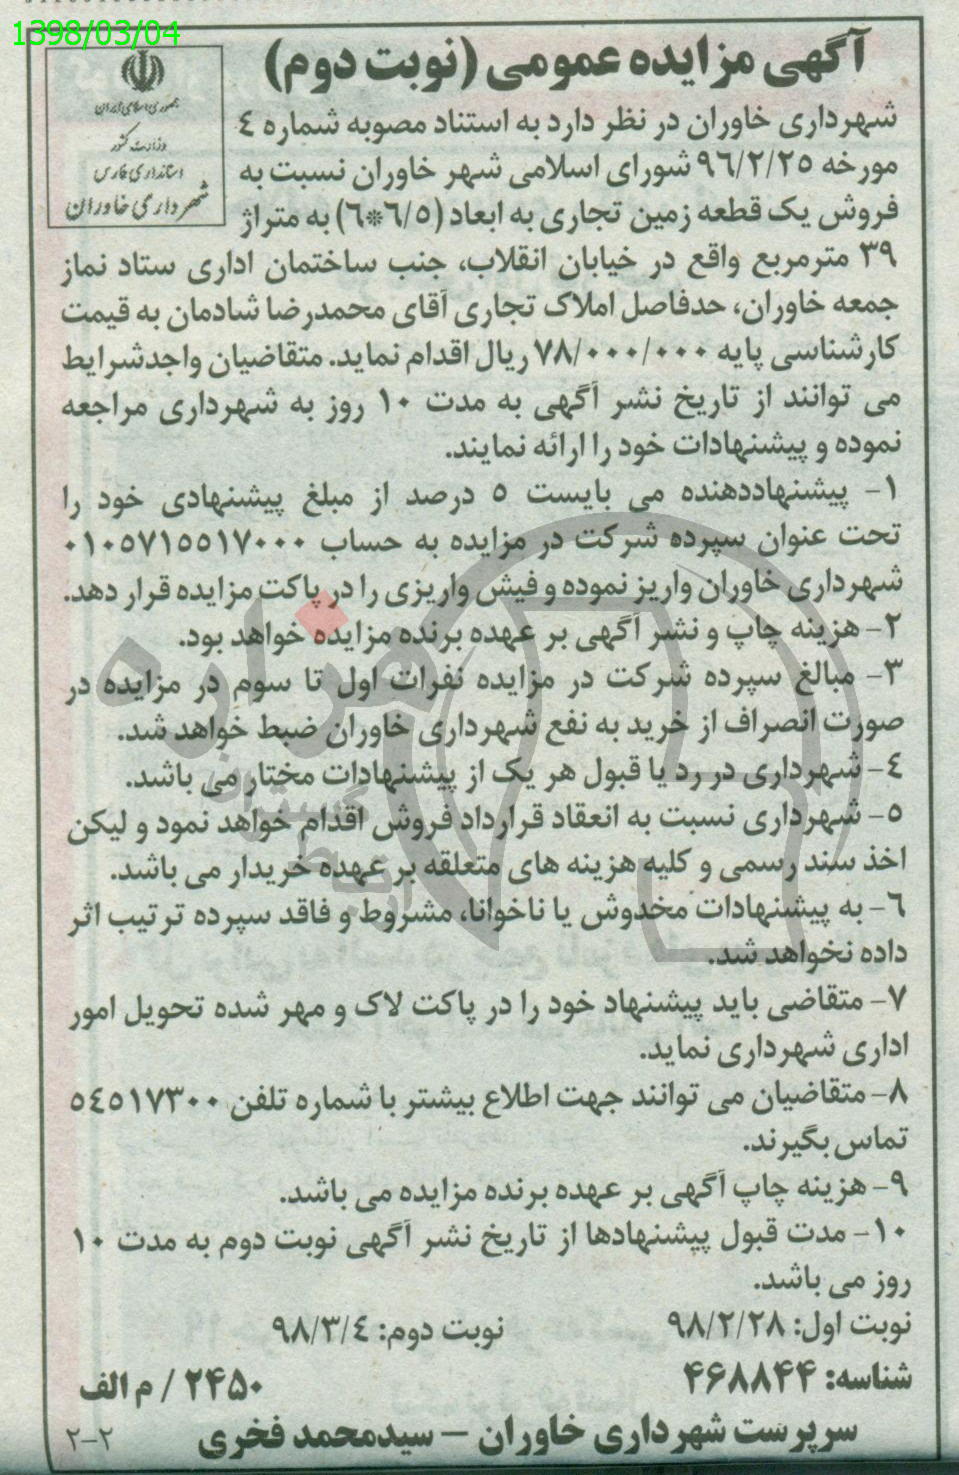 1398/03/04
آگهی مزایده عمومی (نوبت دوم)
جمهوری اسلامی ایران
وزارت کشور
استانداری فارس
شهرداری خاوران
شهرداری خاوران در نظر دارد به استناد مصوبه شماره ٤
مورخه ٩٦/٢/٢٥ شورای اسلامی شهر خاوران نسبت به
فروش یک قطعه زمین تجاری به ابعاد (٦/٥*٦) به متراژ
٣٩ مترمربع واقع در خیابان انقلاب، جنب ساختمان اداری ستاد نماز
جمعه خاوران، حدفاصل املاک تجاری آقای محمدرضا شادمان به قیمت
کارشناسی پایه ٧٨/٠٠٠/٠٠٠ ریال اقدام نماید. متقاضیان واجدشرایط
می توانند از تاریخ نشر آگهی به مدت ١٠ روز به شهرداری مراجعه
نموده و پیشنهادات خود را ارائه نمایند.
١- پیشنهاددهنده می بایست ٥ درصد از مبلغ پیشنهادی خود را
تحت عنوان سپرده شرکت در مزایده به حساب ٠١٠٥٧١٥٥١٧٠٠٠
شهرداری خاوران واریز نموده و فیش واریزی را در پاکت مزایده قرار دهد.
٢- هزینه چاپ و نشر آگهی بر عهده برنده مزایده خواهد بود.
٣- مبالغ سپرده شرکت در مزایده نفرات اول تا سوم در مزایده در
صورت انصراف از خرید به نفع شهرداری خاوران ضبط خواهد شد.
٤- شهرداری در رد یا قبول هر یک از پیشنهادات مختار می باشد.
٥- شهرداری نسبت به انعقاد قرارداد فروش اقدام خواهد نمود و لیکن
اخذ سند رسمی و کلیه هزینه های متعلقه بر عهده خریدار می باشد.
٦- به پیشنهادات مخدوش یا ناخوانا، مشروط و فاقد سپرده ترتیب اثر
داده نخواهد شد.
٧- متقاضی باید پیشنهاد خود را در پاکت لاک و مهر شده تحویل امور
اداری شهرداری نماید.
٨- متقاضیان می توانند جهت اطلاع بیشتر با شماره تلفن ٥٤٥١٧٣٠٠
تماس بگیرند.
٩- هزینه چاپ آگهی بر عهده برنده مزایده می باشد.
١٠- مدت قبول پیشنهادها از تاریخ نشر آگهی نوبت دوم به مدت ١٠
روز می باشد.
نوبت اول: ٩٨/٢/٢٨ نوبت دوم: ٩٨/٣/٤
شناسه: ۴۶۸۸۴۴ ۲۴۵۰ / م الف
سرپرست شهرداری خاوران – سیدمحمد فخری
۲-۲
هزاره